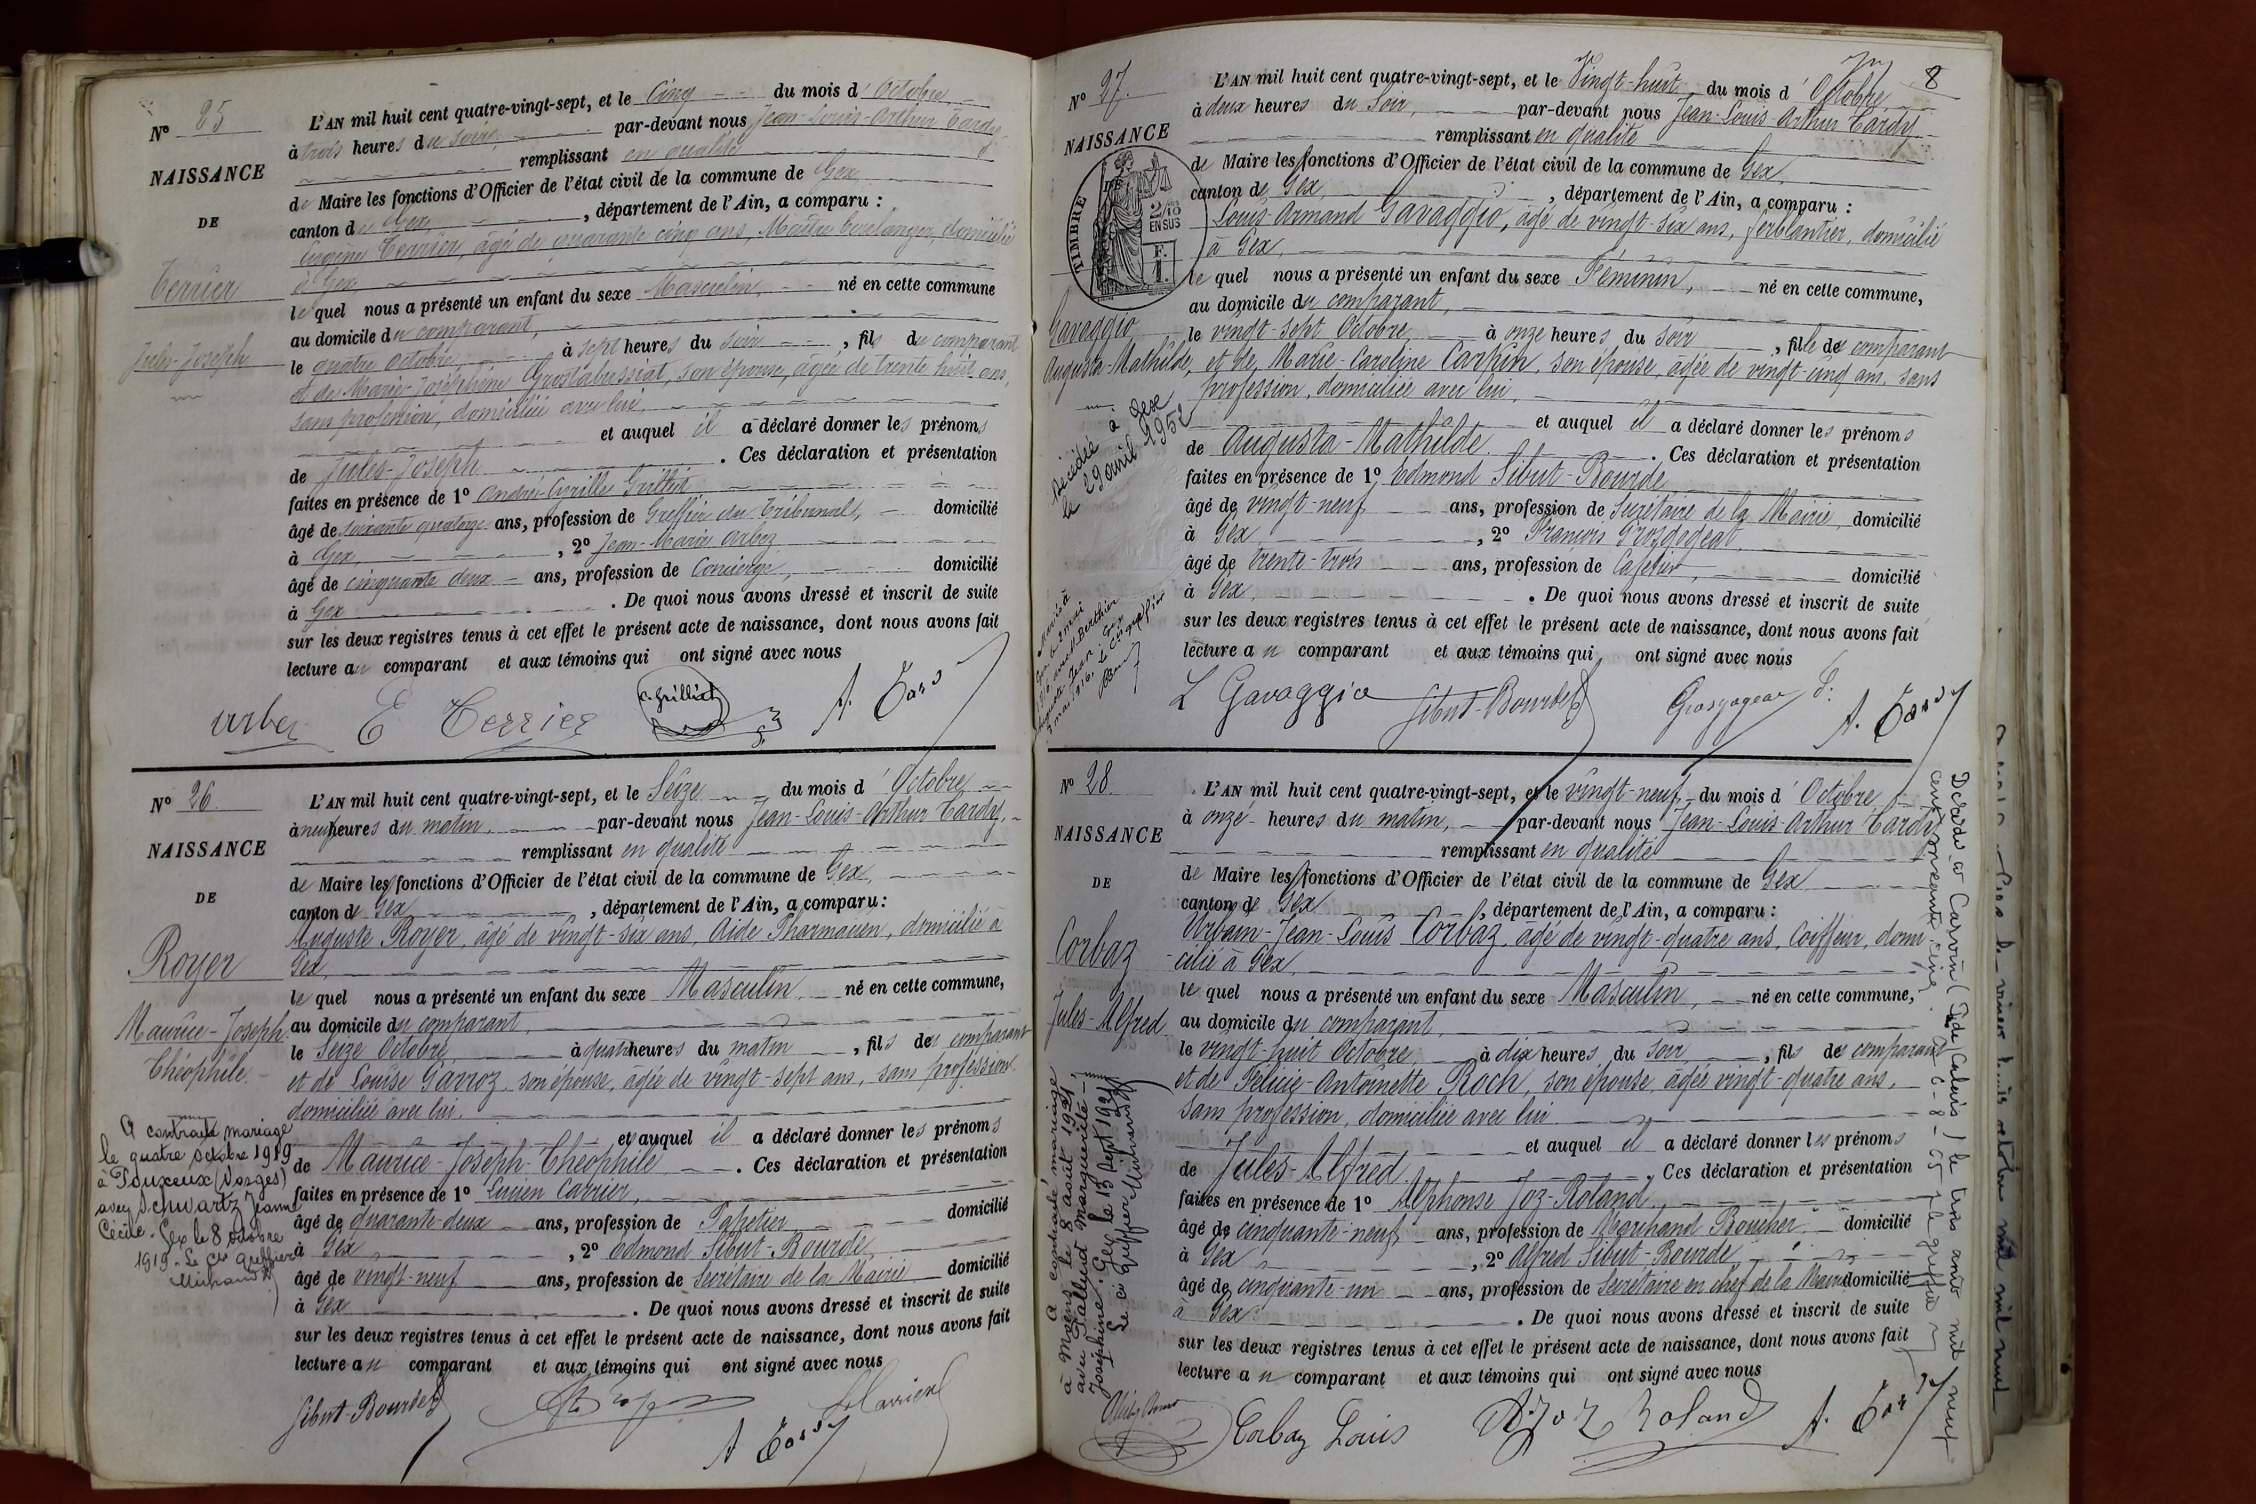 N° 25
NAISSANCE
DE
Terrier
Jules-Joseph
L'AN mil huit cent quatre-vingt-sept, et le Cinq du mois d'Octobre
à trois heures du soir, par-devant nous Jean-Louis-Arthur Tardy
remplissant en qualité
de Maire les fonctions d'Officier de l'état civil de la commune de Gex
canton de Gex, département de l'Ain, a comparu :
Eugène Terrier, âgé de quarante cinq ans, Maître boulanger, domicilié
à Gex
le quel nous a présenté un enfant du sexe Masculin, né en cette commune
au domicile du comparant,
le quatre octobre à sept heures du soir, fils du comparant
et de Marie-Joséphine Grostabussiat, son épouse, âgée de trente huit ans,
sans profession, domiciliée avec lui,
et auquel il a déclaré donner les prénoms
de Jules-Joseph. Ces déclaration et présentation
faites en présence de 1° André-Cyrille Grilliet
âgé de soixante quatorze ans, profession de Greffier du Tribunal, domicilié
à Gex, 2° Jean-Marie Arbez
âgé de cinquante deux ans, profession de Concierge, domicilié
à Gex. De quoi nous avons dressé et inscrit de suite
sur les deux registres tenus à cet effet le présent acte de naissance, dont nous avons fait
lecture au comparant et aux témoins qui ont signé avec nous
Arbez E Terrier C. Grilliet A. Tardy
N° 26
NAISSANCE
DE
Royer
Maurice-Joseph
Théophile
A contracté mariage
le quatre octobre 1919
à Pouxeux (Vosges)
avec Schwartz Jeanne
Cécile. Gex le 8 octobre
1919. Le Cis Greffier
L'AN mil huit cent quatre-vingt-sept, et le Seize du mois d'Octobre
à neuf heures du matin, par-devant nous Jean-Louis-Arthur Tardy,
remplissant en qualité
de Maire les fonctions d'Officier de l'état civil de la commune de Gex,
canton de Gex, département de l'Ain, a comparu :
Auguste Royer, âgé de vingt-six ans, Aide Pharmacien, domicilié à
Gex,
le quel nous a présenté un enfant du sexe Masculin, né en cette commune,
au domicile du comparant,
le Seize Octobre, à quatre heures du matin, fils du comparant
et de Louise Gavroz, son épouse, âgée de vingt-sept ans, sans profession
domiciliée avec lui,
et auquel il a déclaré donner les prénoms
de Maurice-Joseph-Théophile. Ces déclaration et présentation
faites en présence de 1° Lucien Carrier,
âgé de quarante-deux ans, profession de Papetier domicilié
à Gex, 2° Edmond Sibut-Bourde,
âgé de vingt-neuf ans, profession de Secrétaire de la Mairie domicilié
à Gex. De quoi nous avons dressé et inscrit de suite
sur les deux registres tenus à cet effet le présent acte de naissance, dont nous avons fait
lecture au comparant et aux témoins qui ont signé avec nous
Sibut-Bourde A. Royer L. Carrier
A Tardy
8
N° 27.
NAISSANCE
DE
TIMBRE
2/10 EN SUS
F. 1
Gavaggio
Augusta-Mathilde,
Décédée à Gex
le 29 avril 1952
L'AN mil huit cent quatre-vingt-sept, et le Vingt-huit du mois d'Octobre
à deux heures du soir, par-devant nous Jean-Louis-Arthur Tardy
remplissant en qualité
de Maire les fonctions d'Officier de l'état civil de la commune de Gex
canton de Gex, département de l'Ain, a comparu :
Louis-Armand Gavaggio, âgé de vingt-six ans, ferblantier, domicilié
à Gex,
le quel nous a présenté un enfant du sexe Féminin, né en cette commune,
au domicile du comparant,
le vingt-sept Octobre à onze heures du soir, fille du comparant
et de Marie-Caroline Carpin, son épouse, âgée de vingt-cinq ans, sans
profession, domiciliée avec lui,
et auquel il a déclaré donner les prénoms
de Augusta-Mathilde. Ces déclaration et présentation
faites en présence de 1° Edmond Sibut-Bourde
âgé de vingt-neuf ans, profession de Secrétaire de la Mairie, domicilié
à Gex, 2° François Grosgogeat,
âgé de trente-trois ans, profession de Cafetier, domicilié
à Gex. De quoi nous avons dressé et inscrit de suite
sur les deux registres tenus à cet effet le présent acte de naissance, dont nous avons fait
lecture au comparant et aux témoins qui ont signé avec nous
L Gavaggio Sibut-Bourde Grosgogeat f. A. Tardy
N° 28
NAISSANCE
DE
Corbaz
Jules-Alfred
A contracté mariage
à Moëns le 8 août 1921
avec Pallud Marguerite
Joséphine. Gex le 13 Sept 1921
Le Cis Greffier
L'AN mil huit cent quatre-vingt-sept, et le vingt-neuf du mois d'Octobre
à onze heures du matin, par-devant nous Jean-Louis-Arthur Tardy
remplissant en qualité
de Maire les fonctions d'Officier de l'état civil de la commune de Gex
canton de Gex, département de l'Ain, a comparu :
Urbain-Jean-Louis Corbaz, âgé de vingt-quatre ans, Coiffeur, domi-
cilié à Gex,
le quel nous a présenté un enfant du sexe Masculin, né en cette commune,
au domicile du comparant,
le vingt-huit Octobre, à dix heures du soir, fils du comparant
et de Félicie-Antoinette Roch, son épouse, âgée vingt-quatre ans,
sans profession, domiciliée avec lui
et auquel il a déclaré donner les prénoms
de Jules-Alfred. Ces déclaration et présentation
faites en présence de 1° Alphonse Joz-Roland,
âgé de cinquante-neuf ans, profession de Marchand Boucher domicilié
à Gex, 2° Alfred Sibut-Bourde
âgé de cinquante-un ans, profession de Secrétaire en chef de la Mairie domicilié
à Gex. De quoi nous avons dressé et inscrit de suite
sur les deux registres tenus à cet effet le présent acte de naissance, dont nous avons fait
lecture au comparant et aux témoins qui ont signé avec nous
Corbaz Louis A. Joz Roland A. Tardy
Décédé à Carvin (P. de Calais) le trois août mil neuf
cent soixante cinq. 6-8-65 le greffier